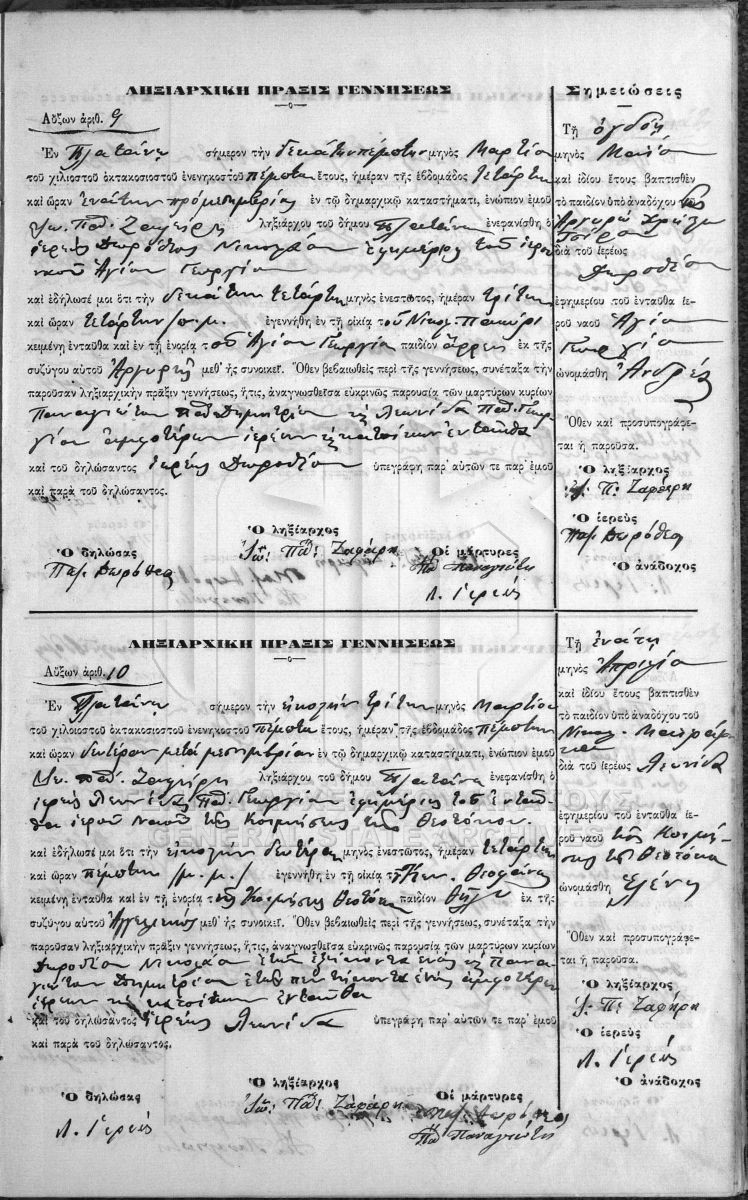 ΛΗΞΙΑΡΧΙΚΗ ΠΡΑΞΙΣ ΓΕΝΝΗΣΕΩΣ
Αὔξων ἀριθ. 9
Ἐν Πλατάνῳ σήμερον τὴν δεκάτην πέμπτην μηνὸς Μαρτίου
τοῦ χιλιοστοῦ ὀκτακοσιοστοῦ ἐνενηκοστοῦ πέμπτου ἔτους, ἡμέραν τῆς ἑβδομάδος τετάρτην
καὶ ὥραν ἐνάτην πρό μεσημβρίας ἐν τῷ δημαρχικῷ καταστήματι, ἐνώπιον ἐμοῦ
Ἰω. Παπ. Ζαφείρη ληξιάρχου τοῦ δήμου Πλατάνου ἐνεφανίσθη ὁ
ἱερεὺς Δωρόθεος Νικολάου ἐφημέριος τοῦ ἱεροῦ
ναοῦ Ἁγίου Γεωργίου
καὶ ἐδήλωσέ μοι ὅτι τὴν δεκάτην τετάρτην μηνὸς ἐνεστῶτος, ἡμέραν τρίτην
καὶ ὥραν τετάρτην π.μ. ἐγεννήθη ἐν τῇ οἰκίᾳ τοῦ Νικολ.
κειμένῃ ἐνταῦθα καὶ ἐν τῇ ἐνορίᾳ τοῦ Ἁγίου Γεωργίου παιδίον ἄρρεν ἐκ τῆς
συζύγου αὐτοῦ Ἀργυρῆς μεθ' ἧς συνοικεῖ. Ὅθεν βεβαιωθεὶς περὶ τῆς γεννήσεως, συνέταξα τὴν
παροῦσαν ληξιαρχικὴν πρᾶξιν γεννήσεως, ἥτις, ἀναγνωσθεῖσα εὐκρινῶς παρουσίᾳ τῶν μαρτύρων κυρίων
Παναγιώτου Παπαδημητρίου κ Λεωνίδα Παπ. Γεωρ
γίου ἀμφοτέρων ἱερέων κ κατοίκων ἐνταῦθα
καὶ τοῦ δηλώσαντος ἱερέως Δωροθέου ὑπεγράφη παρ' αὐτῶν τε παρ' ἐμοῦ
καὶ παρὰ τοῦ δηλώσαντος.
Ὁ ληξίαρχος
Ἰω: Παπ: Ζαφίρη
Ὁ δηλώσας
Παπ. Δωρόθεος
Οἱ μάρτυρες
Παπ Παναγιώτης
Λ. Ἱερεύς
Σημειώσεις
Τῇ ὀγδόῃ
μηνὸς Μαΐου
καὶ ἰδίου ἔτους βαπτισθὲν
τὸ παιδίον ὑπὸ ἀναδόχου τοῦ
διὰ τοῦ ἱερέως
Δωροθέου
ἐφημερίου τοῦ ἐνταῦθα ἱε-
ροῦ ναοῦ Ἁγίου
Γεωργίου
ὠνομάσθη Ἀνδρέας
Ὅθεν καὶ προσυπογράφε-
ται ἡ παροῦσα.
Ὁ ληξίαρχος
Ἰ. Π. Ζαφίρη
Ὁ ἱερεὺς
Παπ. Δωρόθεος
Ὁ ἀνάδοχος
ΛΗΞΙΑΡΧΙΚΗ ΠΡΑΞΙΣ ΓΕΝΝΗΣΕΩΣ
Αὔξων ἀριθ. 10
Ἐν Πλατάνῳ σήμερον τὴν εἰκοστήν τρίτην μηνὸς Μαρτίου
τοῦ χιλιοστοῦ ὀκτακοσιοστοῦ ἐνενηκοστοῦ πέμπτου ἔτους, ἡμέραν τῆς ἑβδομάδος πέμπτην
καὶ ὥραν δευτέραν μετά μεσημβρίαν ἐν τῷ δημαρχικῷ καταστήματι, ἐνώπιον ἐμοῦ
Ἰω. Παπ. Ζαφείρη ληξιάρχου τοῦ δήμου Πλατάνου ἐνεφανίσθη ὁ
ἱερεὺς Λεωνίδας Παπ. Γεωργίου ἐφημέριος τοῦ ἐνταῦ
θα ἱεροῦ Ναοῦ τῆς Κοιμήσεως τῆς Θεοτόκου
καὶ ἐδήλωσέ μοι ὅτι τὴν εἰκοστήν δευτέραν μηνὸς ἐνεστῶτος, ἡμέραν τετάρτην
καὶ ὥραν πέμπτην μ.μ. ἐγεννήθη ἐν τῇ οἰκίᾳ τοῦ Κων. Θεοφάνη
κειμένῃ ἐνταῦθα καὶ ἐν τῇ ἐνορίᾳ τῆς Κοιμήσ. Θεοτόκου παιδίον θῆλυ ἐκ τῆς
συζύγου αὐτοῦ Ἀγγελικῆς μεθ' ἧς συνοικεῖ. Ὅθεν βεβαιωθεὶς περὶ τῆς γεννήσεως, συνέταξα τὴν
παροῦσαν ληξιαρχικὴν πρᾶξιν γεννήσεως, ἥτις, ἀναγνωσθεῖσα εὐκρινῶς παρουσίᾳ τῶν μαρτύρων κυρίων
Δωροθέου Νικολάου ἐτῶν ἑξήκοντα ἑνός κ Πανα
γιώτου Δημητρίου ἐτῶν πεντήκοντα ἑνός ἀμφοτέρων
ἱερέων κ κατοίκων ἐνταῦθα
καὶ τοῦ δηλώσαντος ἱερέως Λεωνίδα ὑπεγράφη παρ' αὐτῶν τε παρ' ἐμοῦ
καὶ παρὰ τοῦ δηλώσαντος.
Ὁ ληξίαρχος
Ἰω: Παπ: Ζαφίρη
Ὁ δηλώσας
Λ. Ἱερεύς
Οἱ μάρτυρες
Παπ. Δωρόθεος
Παπ Παναγιώτης
Τῇ ἐνάτῃ
μηνὸς Ἀπριλίου
καὶ ἰδίου ἔτους βαπτισθὲν
τὸ παιδίον ὑπὸ ἀναδόχου τοῦ
Νικολ.
διὰ τοῦ ἱερέως Λεωνίδα
ἐφημερίου τοῦ ἐνταῦθα ἱε-
ροῦ ναοῦ τῆς Κοιμή-
σεως τῆς Θεοτόκου
ὠνομάσθη Ἑλένη
Ὅθεν καὶ προσυπογράφε-
ται ἡ παροῦσα.
Ὁ ληξίαρχος
Ἰ. Π. Ζαφίρη
Ὁ ἱερεὺς
Λ. Ἱερεύς
Ὁ ἀνάδοχος
GENERAL STATE ARCHIVES